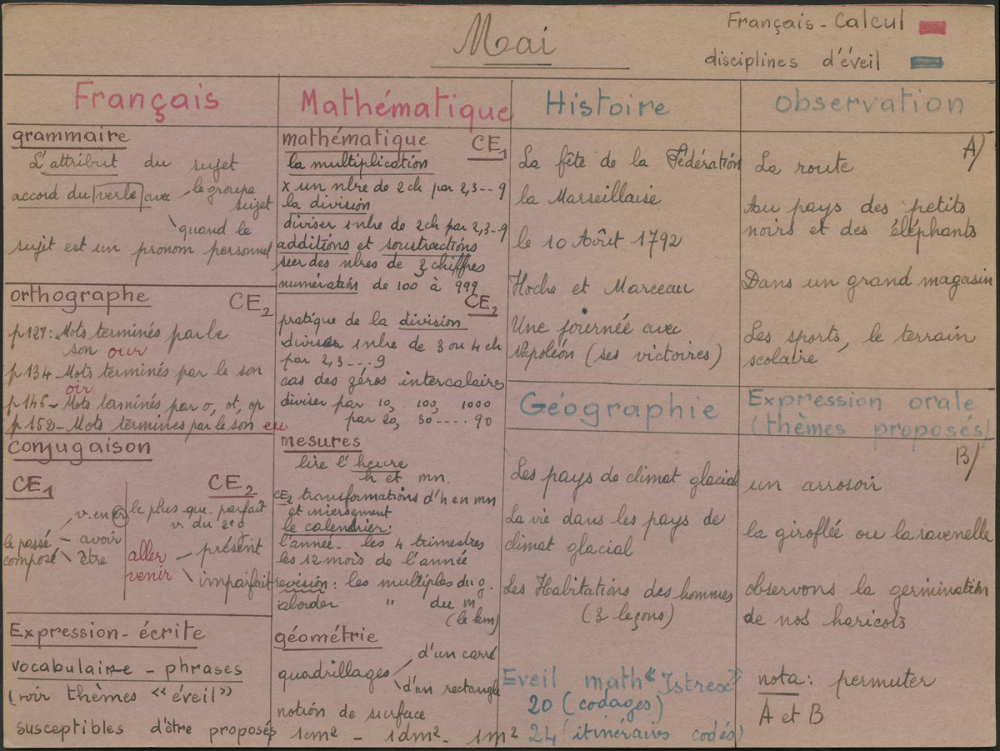 Mai
Français - Calcul
disciplines d'éveil
Français
grammaire
L'attribut du sujet
accord du verbe avec le groupe sujet
quand le
sujet est un pronom personnel
orthographe CE2
p 127: Mots terminés par le
son our
p 134 - Mots terminés par le son
oir
p 146 - Mots terminés par o, ot, op
p 152 - Mots terminés par le son eu
Conjugaison
CE1 CE2
le passé composé
v. en er
avoir
être
le plus que parfait
v. du 2e g
aller
venir
présent
imparfait
Expression - écrite
vocabulaire - phrases
(voir thèmes « éveil »
susceptibles d'être proposés
Mathématique
mathématique CE1
la multiplication
x un nbre de 2 ch par 2,3 -- 9
la division
diviser 1 nbre de 2 ch par 2,3 -- 9
additions et soustractions
sur des nbres de 3 chiffres
numération de 100 à 999
CE2
pratique de la division
diviser 1 nbre de 3 ou 4 ch
par 2,3 - .. , 9
cas des zéros intercalaires
diviser par 10, 100, 1000
par 20, 30 .... 90
mesures
lire l'heure
h et mn.
CE2 transformations d'h en mn
et inversement
le calendrier:
l'année - les 4 trimestres
les 12 mois de l'année
revision: les multiples du g.
aborder " du m
(le km)
géométrie
quadrillages
d'un carré
d'un rectangle
notion de surface
1cm² - 1dm² - 1m²
Histoire
La fête de la Fédération
la Marseillaise
le 10 Août 1792
Hoche et Marceau
Une journée avec
Napoléon (ses victoires)
Géographie
Les pays de climat glacial
La vie dans les pays de
climat glacial
Les Habitations des hommes
(3 leçons)
Eveil math « Istrex »
20 (codages)
24 (itinéraires codés)
Observation
A)
La route
Au pays des petits
noirs et des éléphants
Dans un grand magasin
Les sports, le terrain
scolaire
Expression orale
(thèmes proposés)
B)
un arrosoir
la giroflée ou la ravenelle
observons la germination
de nos haricots
nota: permuter
A et B